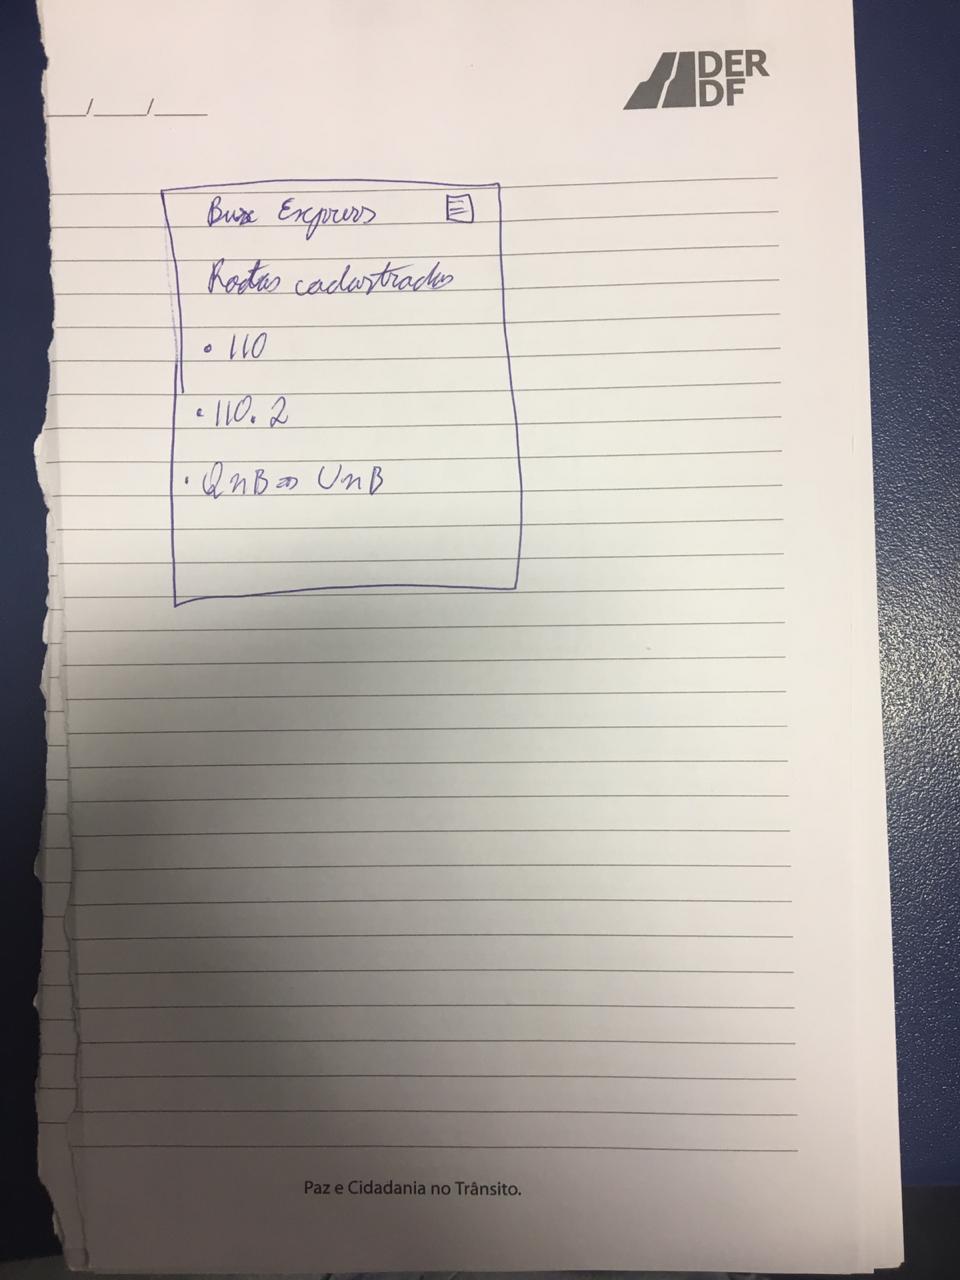 DER
DF
__/__/__
Buxe Express
Rotas cadastradas
• 110
• 110.2
• QNB => UnB
Paz e Cidadania no Trânsito.